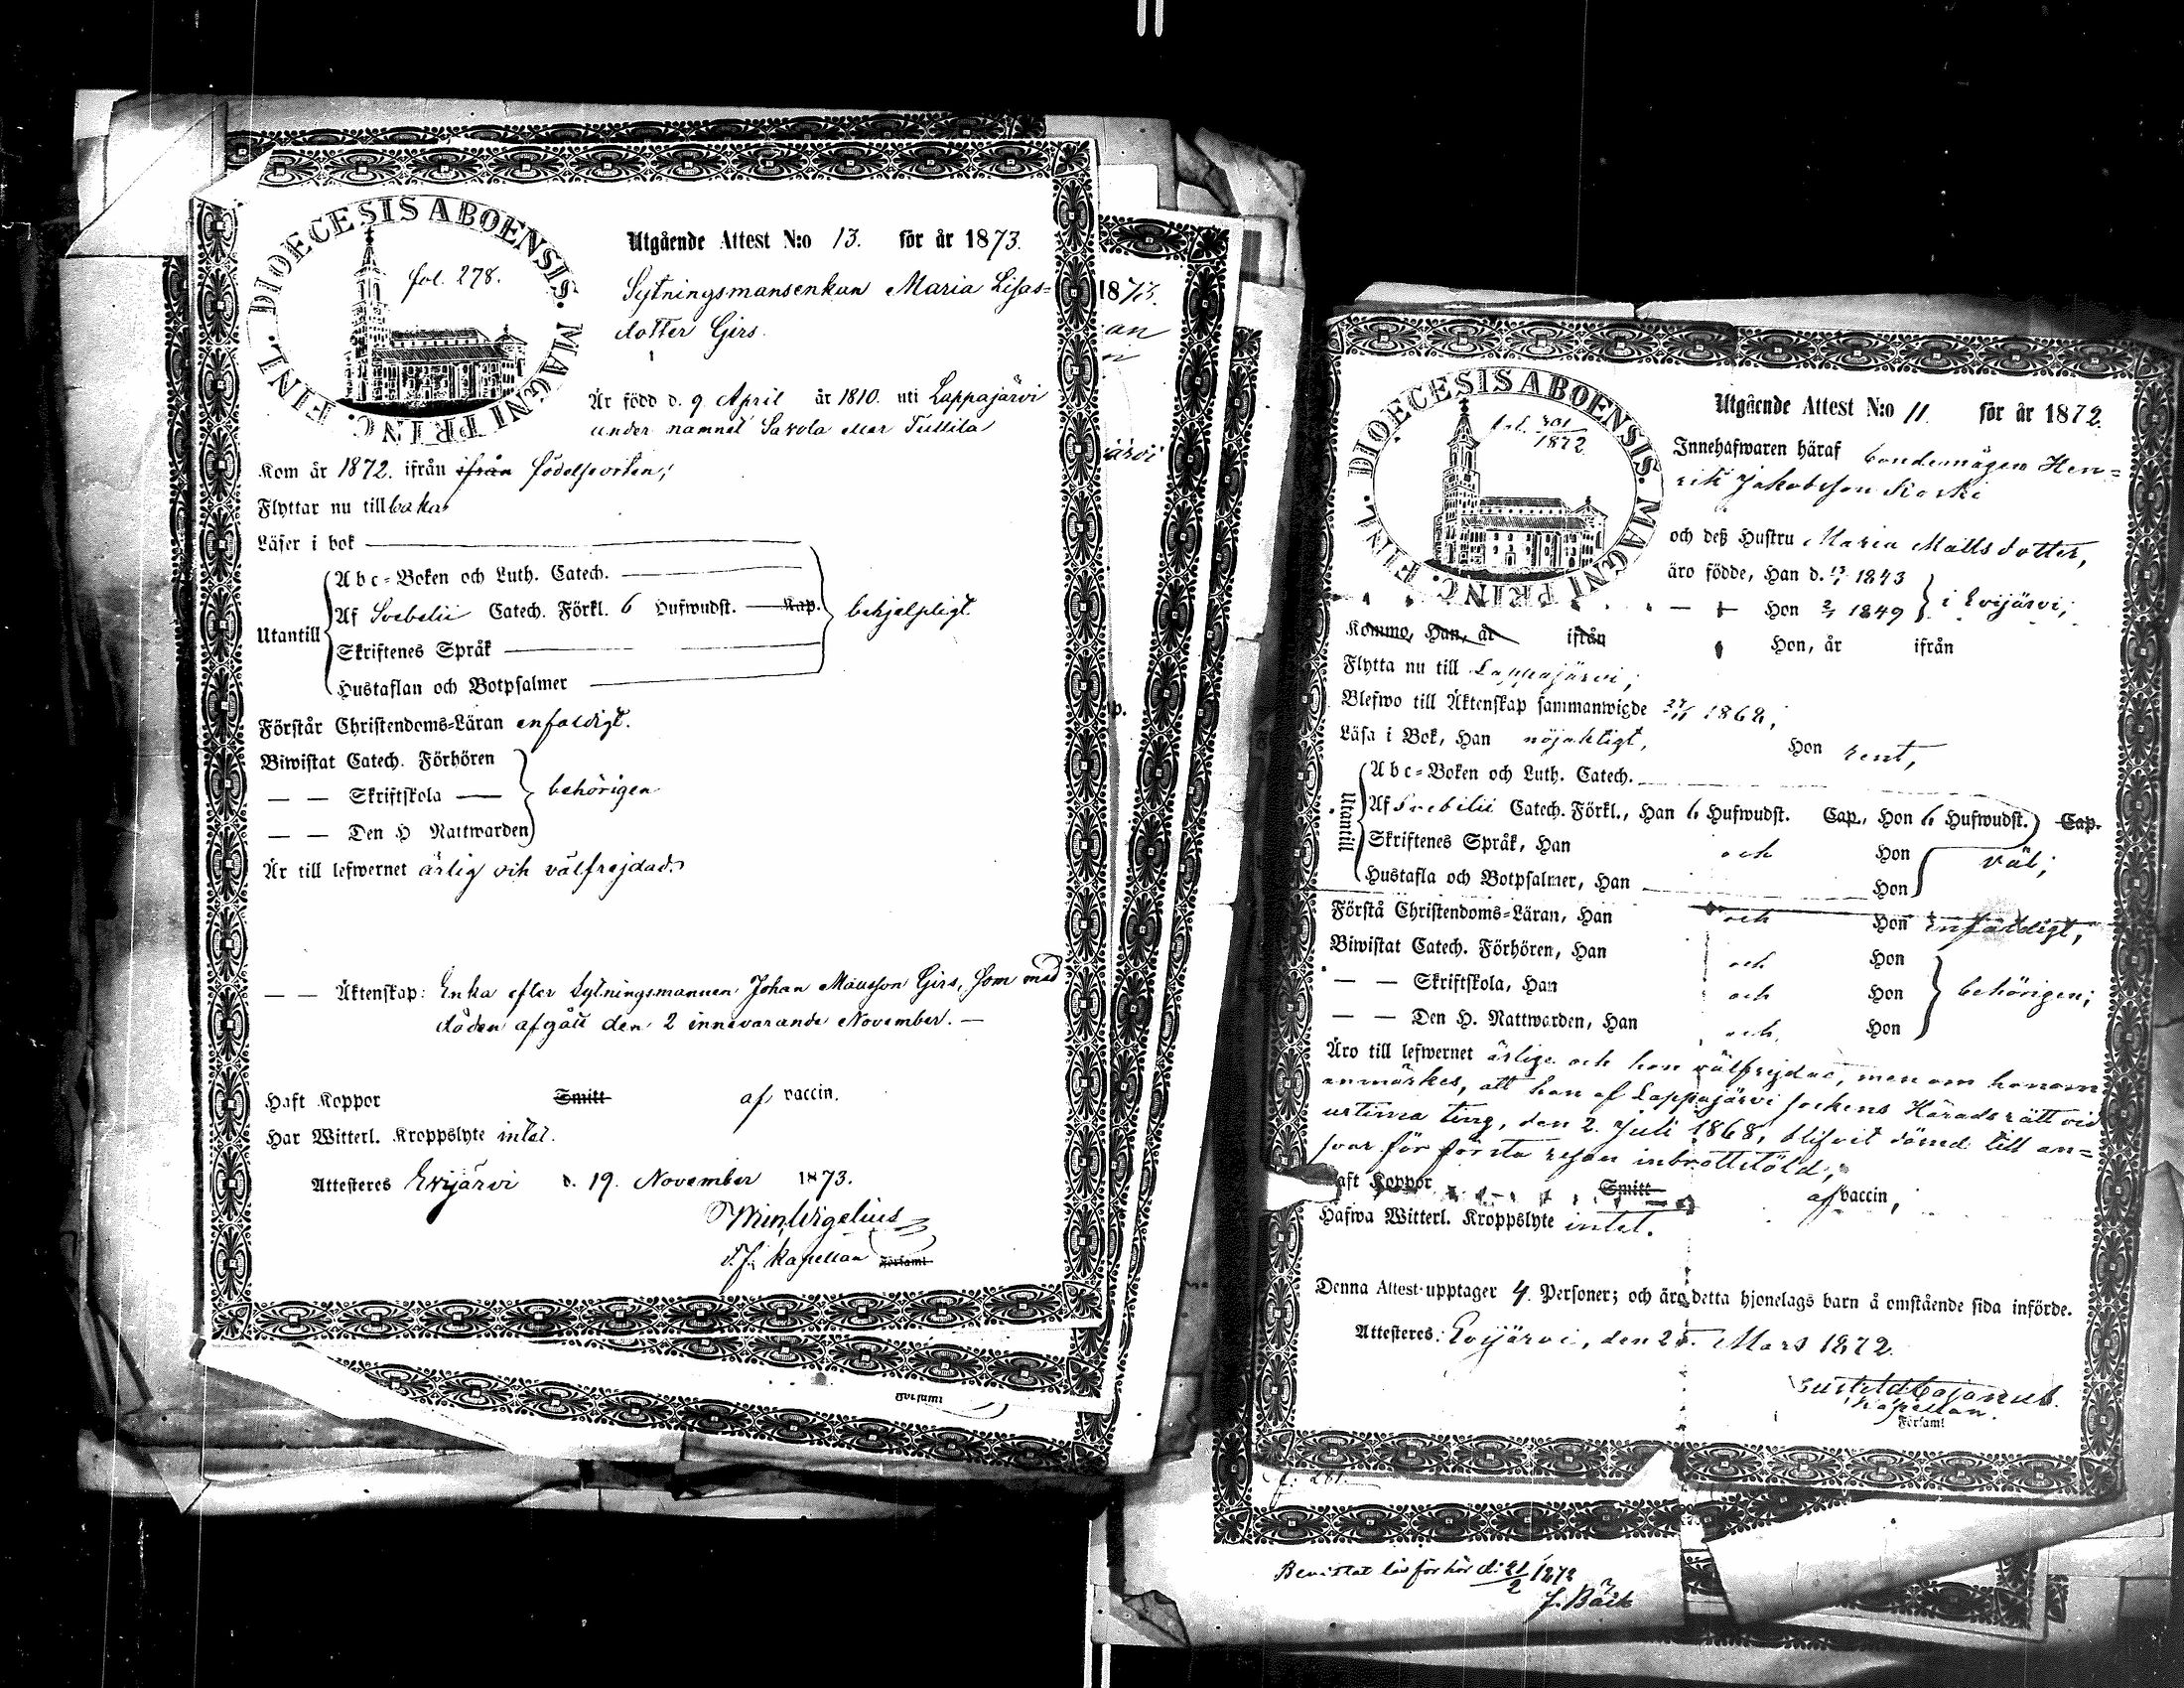 DIOECESIS ABOENSIS. MAGNI PRINC. FINL.
fol. 278.
Utgående Attest N:o 13. för år 1873.
Sytningsmansenkan Maria Lisas=
dotter Girs.
Är född d. 9 April år 1810. uti Lappajärvi
under namnet
Kom år 1872. ifrån ifrån födelseorten;
Flyttar nu till baka
Läser i bok
Utantill
Abc-Boken och Luth. Catech.
Af Svebelii Catech. Förkl. 6 Hufwudst. Kap.
Skriftenes Språk
Hustaflan och Botpsalmer
behjelpligt.
Förstår Christendoms-Läran enfaldigt.
Biwistat Catech. Förhören
— — Skriftskola
— — Den H Nattwarden
behörigen
Är till lefwernet ärlig och välfrejdad.
— — Äktenskap: Enka efter Sytningsmannen Johan Mattsson Girs, som med
döden afgått den 2 innevarande November. —
Haft Koppor Smitt af vaccin.
Har Witterl. Kroppslyte intet.
Attesteres Evijärvi d. 19. November 1873.
Wigelius
v. f. kapellan Församl
1873.
an
n
järvi
p.
Församl
DIOECESIS ABOENSIS. MAGNI PRINC. FINL.
fol. 301
1872
Utgående Attest N:o 11. för år 1872.
Innehafwaren häraf bondemågen Hen=
rik Jakobsson Koski
och deß Hustru Maria Mattsdotter,
äro födde, Han d. 1843
— + Hon 1849
i Evijärvi;
Kommo, Han, år ifrån Hon, år ifrån
Flytta nu till Lappajärvi;
Blefwo till Äktenskap sammanwigde 1868;
Läsa i Bok, Han nöjaktigt, Hon rent,
Utantill
Abc-Boken och Luth. Catech.
Af Svebilii Catech. Förkl., Han 6 Hufwudst. Cap., Hon 6 Hufwudst. Cap.
Skriftenes Språk, Han och Hon
Hustafla och Botpsalmer, Han Hon
väl;
Förstå Christendoms-Läran, Han och Hon enfaldigt,
Biwistat Catech. Förhören, Han och Hon
— — Skriftskola, Han och Hon
— — Den H. Nattwarden, Han och Hon
behörigen;
Äro till lefwernet ärlige och hon välfrejdad, men om honom
anmärkes, att han af Lappajärvi sockens Häradsrätt vid
urtima ting, den 2. Juli 1868, blifvit dömd till an=
svar för första resan inbrottstöld;
Haft Koppor Smitt af vaccin,
Hafwa Witterl. Kroppslyte intet.
Denna Attest upptager 4. Personer; och äro detta hjonelags barn å omstående sida införde.
Attesteres: Evijärvi, den Mars 1872.
Cajanus.
Kapellan.
Församl
f. 281.
Bevistat läsförhör d: 21/2 1872
J. Bäck